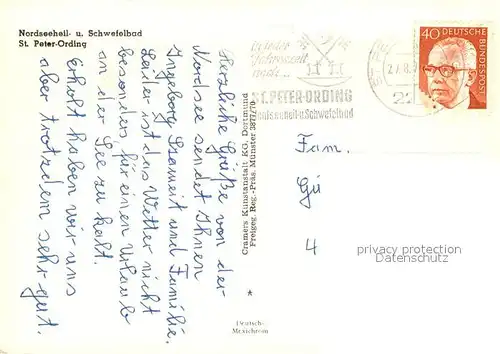 Nordseeheil- u. Schwefelbad
St. Peter-Ording
Herzliche Grüße von der
Nordsee sendet Ihnen
Ingeborg und Familie.
Leider ist das Wetter nicht
besonders, für einen Urlaub
an der See zu kalt.
Erholt haben wir uns
aber trotzdem sehr gut.
Cramers Kunstanstalt KG, Dortmund
Freigeg. Reg.-Präs. Münster 3877/70
*
In jeder
Jahreszeit
ST. PETER-ORDING
Nordseeheil-u. Schwefelbad
40 DEUTSCHE
BUNDESPOST
Fam.
Gü
4
privacy protection
Datenschutz